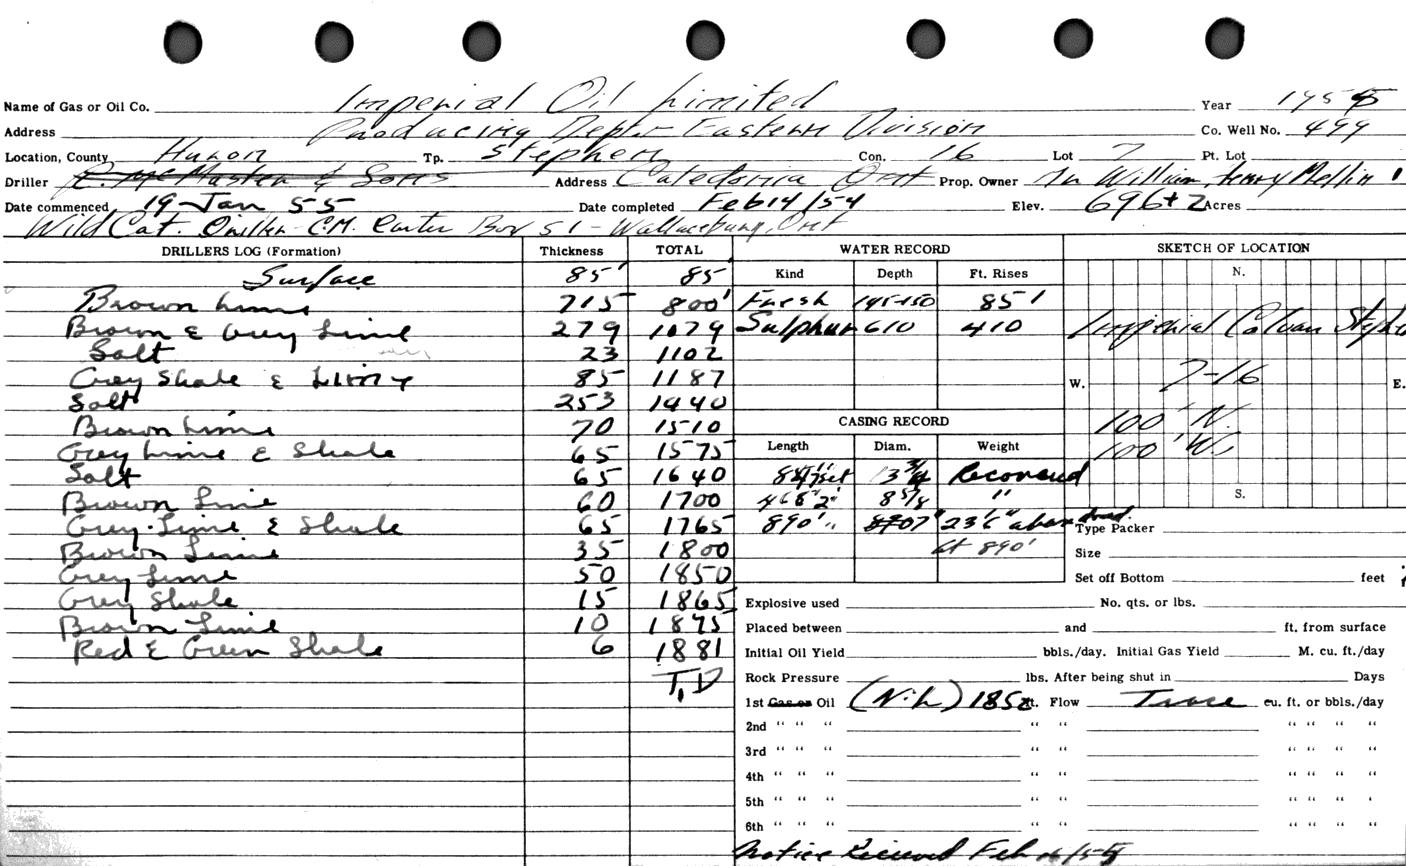 Name of Gas or Oil Co. Imperial Oil Limited Year 1955
Address Producing Dept. Eastern Division Co. Well No. 499
Location, County Huron Tp. Stephen Con. 16 Lot 7 Pt. Lot
Driller C. McMaster & Sons Address Caledonia Ont Prop. Owner William Henry Mellin
Date commenced 19-Jan 55 Date completed Feb 14/54 Elev. 696+2 Acres
Wild Cat. Driller C.M. Carter Box 51 - Wallaceburg, Ont
DRILLERS LOG (Formation) Thickness TOTAL WATER RECORD SKETCH OF LOCATION
Surface 85' 85 Kind Depth Ft. Rises N.
Brown Lime 715 800' Fresh 145-150 85'
Brown & Grey Lime 279 1079 Sulphur 610 410 Imperial Calvan Steph
Salt 23 1102
Grey Shale & Limy 85 1187 W. 7-16 E.
Salt 253 1440 100' N.
Brown Lime 70 1510 CASING RECORD
Grey Lime & Shale 65 1575 Length Diam. Weight 100' W.
Salt 65 1640 13 3/4 Recovered
Brown Lime 60 1700 468'2" 8 5/8 " S.
Grey Lime & Shale 65 1765 890' " 23'6" above Type Packer
Brown Lime 35 1800 at 890' Size
Grey Lime 50 1850 Set off Bottom feet
Grey Shale 15 1865 Explosive used No. qts. or lbs.
Brown Lime 10 1875 Placed between and ft. from surface
Red & Green Shale 6 1881 Initial Oil Yield bbls./day. Initial Gas Yield M. cu. ft./day
T.D Rock Pressure lbs. After being shut in Days
1st Gas or Oil (Nil) 1852 ft. Flow Trace cu. ft. or bbls./day
2nd " " " " " " " " "
3rd " " " " " " " " "
4th " " " " " " " " "
5th " " " " " " " " "
6th " " " " " " " " "
Notice Received Feb /55